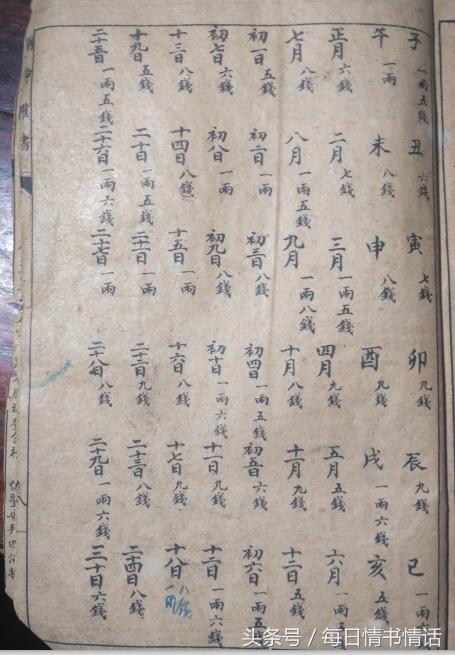 子 一兩五錢 丑 六錢 寅 七錢 卯 九錢 辰 九錢 巳 一兩
午 一兩 未 八錢 申 八錢 酉 九錢 戌 一兩六錢 亥 五錢
正月 六錢 二月 七錢 三月 一兩五錢 四月 九錢 五月 五錢 六月 一兩五錢
七月 八錢 八月 一兩五錢 九月 一兩八錢 十月 八錢 十一月 九錢 十二月 五錢
初一日 五錢 初二日 一兩 初三日 八錢 初四日 一兩五錢 初五日 六錢 初六日 一兩五錢
初七日 六錢 初八 一兩 初九日 八錢 初十日 一兩六錢 十一日 九錢 十二日 一兩六錢
十三日 八錢 十四日 八錢 十五日 一兩 十六日 八錢 十七日 九錢 十八日 一兩 八錢
十九日 五錢 二十日 一兩五錢 二十一日 一兩 二十二日 九錢 二十三日 八錢 二十四日 八錢
二十五日 一兩五錢 二十六日 一兩六錢 二十七日 一兩 二十八日 八錢 二十九日 一兩六錢 三十日 六錢
头条号 / 每日情书情话